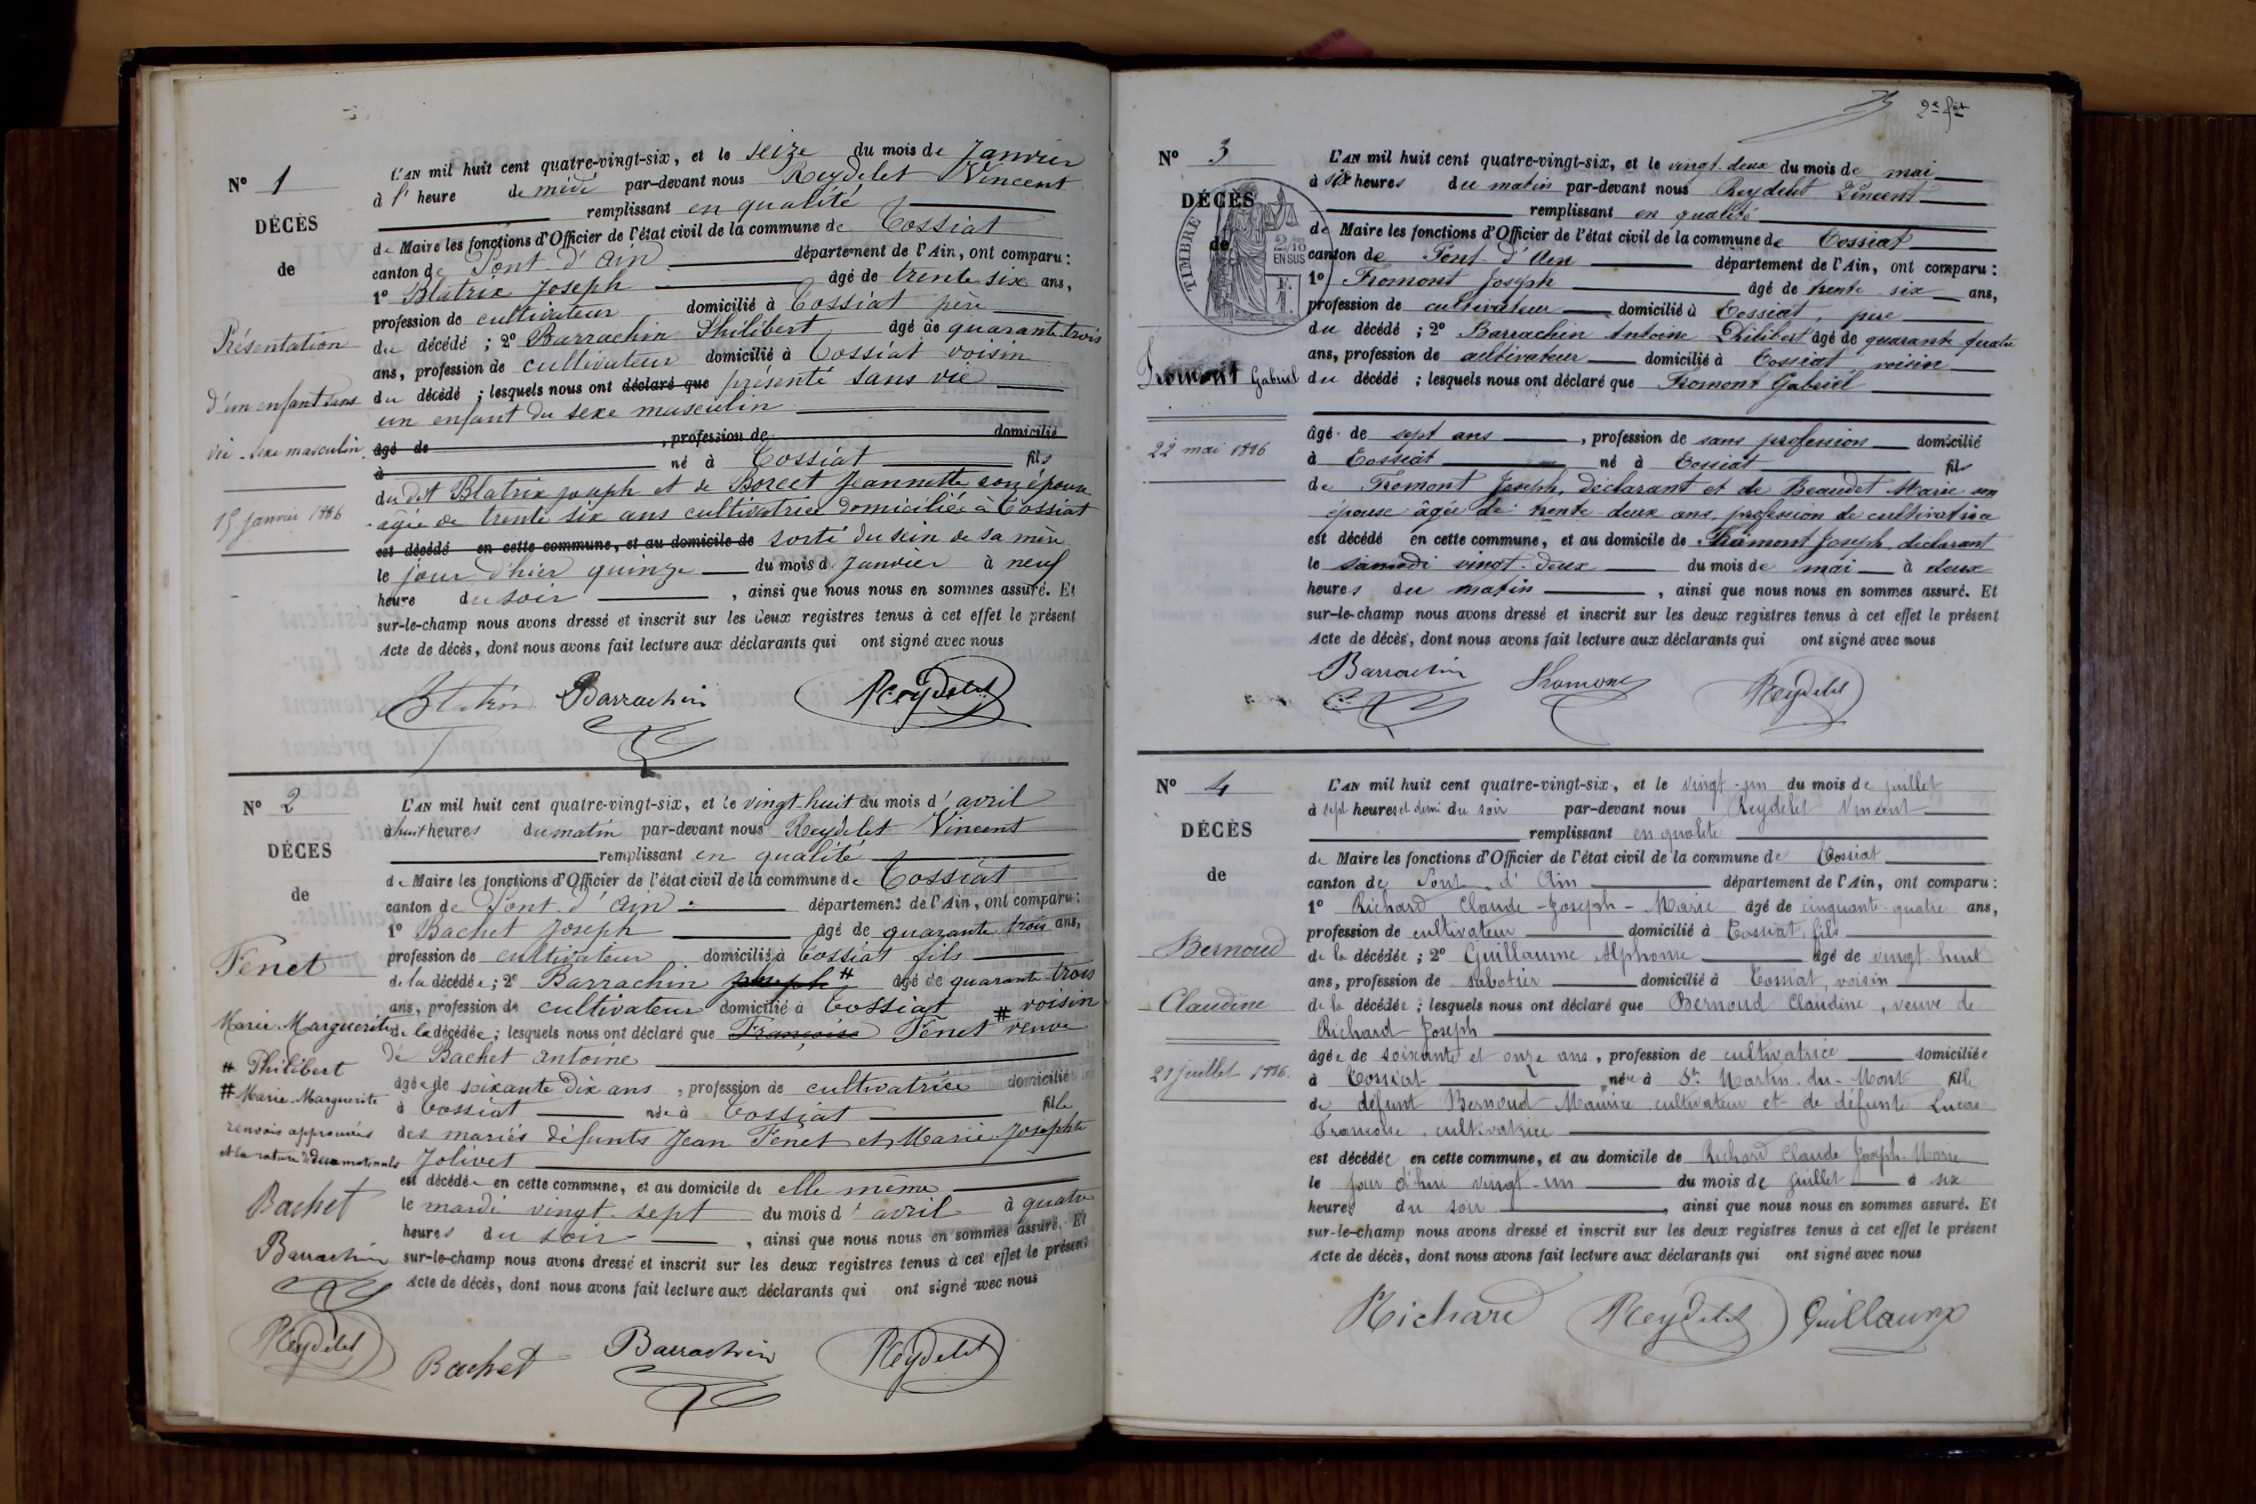 Nº 1
DÉCÈS
de
Présentation
d'un enfant sans
vie - sexe masculin.
15 janvier 1886
L'AN mil huit cent quatre-vingt-six, et le seize du mois de Janvier
à 1h heure de midi par-devant nous Reydelet Vincent
remplissant en qualité
de Maire les fonctions d'Officier de l'état civil de la commune de Tossiat
canton de Pont d'Ain département de l'Ain, ont comparu :
1º Blatrix Joseph âgé de trente six ans,
profession de cultivateur domicilié à Tossiat père
du décédé ; 2º Barrachin Philibert âgé de quarante-trois
ans, profession de cultivateur domicilié à Tossiat voisin
du décédé ; lesquels nous ont déclaré que présenté sans vie
un enfant du sexe masculin
âgé de , profession de domicilié
à né à Tossiat fils
du dit Blatrix joseph et de Jeannette son épouse
âgée de trente six ans cultivatrice domiciliée à Tossiat
est décédé en cette commune, et au domicile de sorti du sein de sa mère
le jour d'hier quinze du mois d Janvier à neuf
heure du soir , ainsi que nous nous en sommes assuré. Et
sur-le-champ nous avons dressé et inscrit sur les deux registres tenus à cet effet le présent
Acte de décès, dont nous avons fait lecture aux déclarants qui ont signé avec nous
Barrachin Reydelet
Nº 2
DÉCES
de
Fenet
Marie Marguerite
# Philibert
# Marie Marguerite
renvois approuvés
Bachet
Barrachin
Reydelet
L'AN mil huit cent quatre-vingt-six, et le vingt-huit du mois d'avril
à huit heures du matin par-devant nous Reydelet Vincent
remplissant en qualité
de Maire les fonctions d'Officier de l'état civil de la commune de Tossiat
canton de Pont-d'Ain département de l'Ain, ont comparu :
1º Bachet Joseph âgé de quarante trois ans,
profession de cultivateur domicilié à Tossiat fils
de la décédée ; 2º Barrachin joseph # âgé de quarante trois
ans, profession de cultivateur domicilié à Tossiat voisin
de la décédée ; lesquels nous ont déclaré que Françoise # Fenet veuve
de Bachet antoine
âgée de soixante dix ans , profession de cultivatrice domicilié
à Tossiat née à Tossiat fille
des mariés défunts Jean Fenet et Marie Josephte
Jolivet
est décédée en cette commune, et au domicile de elle même
le mardi vingt-sept du mois d'avril à quatre
heures du soir , ainsi que nous nous en sommes assuré. Et
sur-le-champ nous avons dressé et inscrit sur les deux registres tenus à cet effet le présent
Acte de décès, dont nous avons fait lecture aux déclarants qui ont signé avec nous
Bachet Barrachin Reydelet
2e fet
Nº 3
DÉCÈS
de
TIMBRE
2/10
EN SUS
Fromont Gabriel
22 mai 1886
L'AN mil huit cent quatre-vingt-six, et le vingt-deux du mois de mai
à six heures du matin par-devant nous Reydelet Vincent
remplissant en qualité
de Maire les fonctions d'Officier de l'état civil de la commune de Tossiat
canton de Pont-d'Ain département de l'Ain, ont comparu :
1º Fromont Joseph âgé de trente six ans,
profession de cultivateur domicilié à Tossiat, père
du décédé ; 2º Barrachin Antoine Philibert âgé de quarante quatre
ans, profession de cultivateur domicilié à Tossiat, voisin
du décédé ; lesquels nous ont déclaré que Fromont Gabriel
âgé de sept ans , profession de sans profession domicilié
à Tossiat né à Tossiat fils
de Fromont Joseph, déclarant et de Beaudet Marie son
épouse âgée de trente-deux ans, profession de cultivatrice
est décédé en cette commune, et au domicile de Fromont Joseph, déclarant
le samedi vingt-deux du mois de mai à deux
heures du matin , ainsi que nous nous en sommes assuré. Et
sur-le-champ nous avons dressé et inscrit sur les deux registres tenus à cet effet le présent
Acte de décès, dont nous avons fait lecture aux déclarants qui ont signé avec nous
Barrachin Fromont Reydelet
Nº 4
DÉCÈS
de
Bernoud
Claudine
21 juillet 1886.
L'AN mil huit cent quatre-vingt-six, et le vingt-un du mois de juillet
à sept heures et demi du soir par-devant nous Reydelet Vincent
remplissant en qualité
de Maire les fonctions d'Officier de l'état civil de la commune de Tossiat
canton de Pont-d'Ain département de l'Ain, ont comparu :
1º Richard Claude-Joseph-Marie âgé de cinquante-quatre ans,
profession de cultivateur domicilié à Tossiat, fils
de la décédée ; 2º Guillaume Alphonse âgé de vingt-huit
ans, profession de sabotier domicilié à Tossiat, voisin
de la décédée ; lesquels nous ont déclaré que Bernoud Claudine, veuve de
Richard Joseph
âgée de soixante et onze ans , profession de cultivatrice domiciliée
à Tossiat née à St Martin-du-Mont fille
de défunt Bernoud Maurice cultivateur et de défunte Lucas
Françoise, cultivatrice
est décédée en cette commune, et au domicile de Richard Claude Joseph-Marie
le jour d'hui vingt-un du mois de juillet à six
heures du soir , ainsi que nous nous en sommes assuré. Et
sur-le-champ nous avons dressé et inscrit sur les deux registres tenus à cet effet le présent
Acte de décès, dont nous avons fait lecture aux déclarants qui ont signé avec nous
Richard Reydelet Guillaume